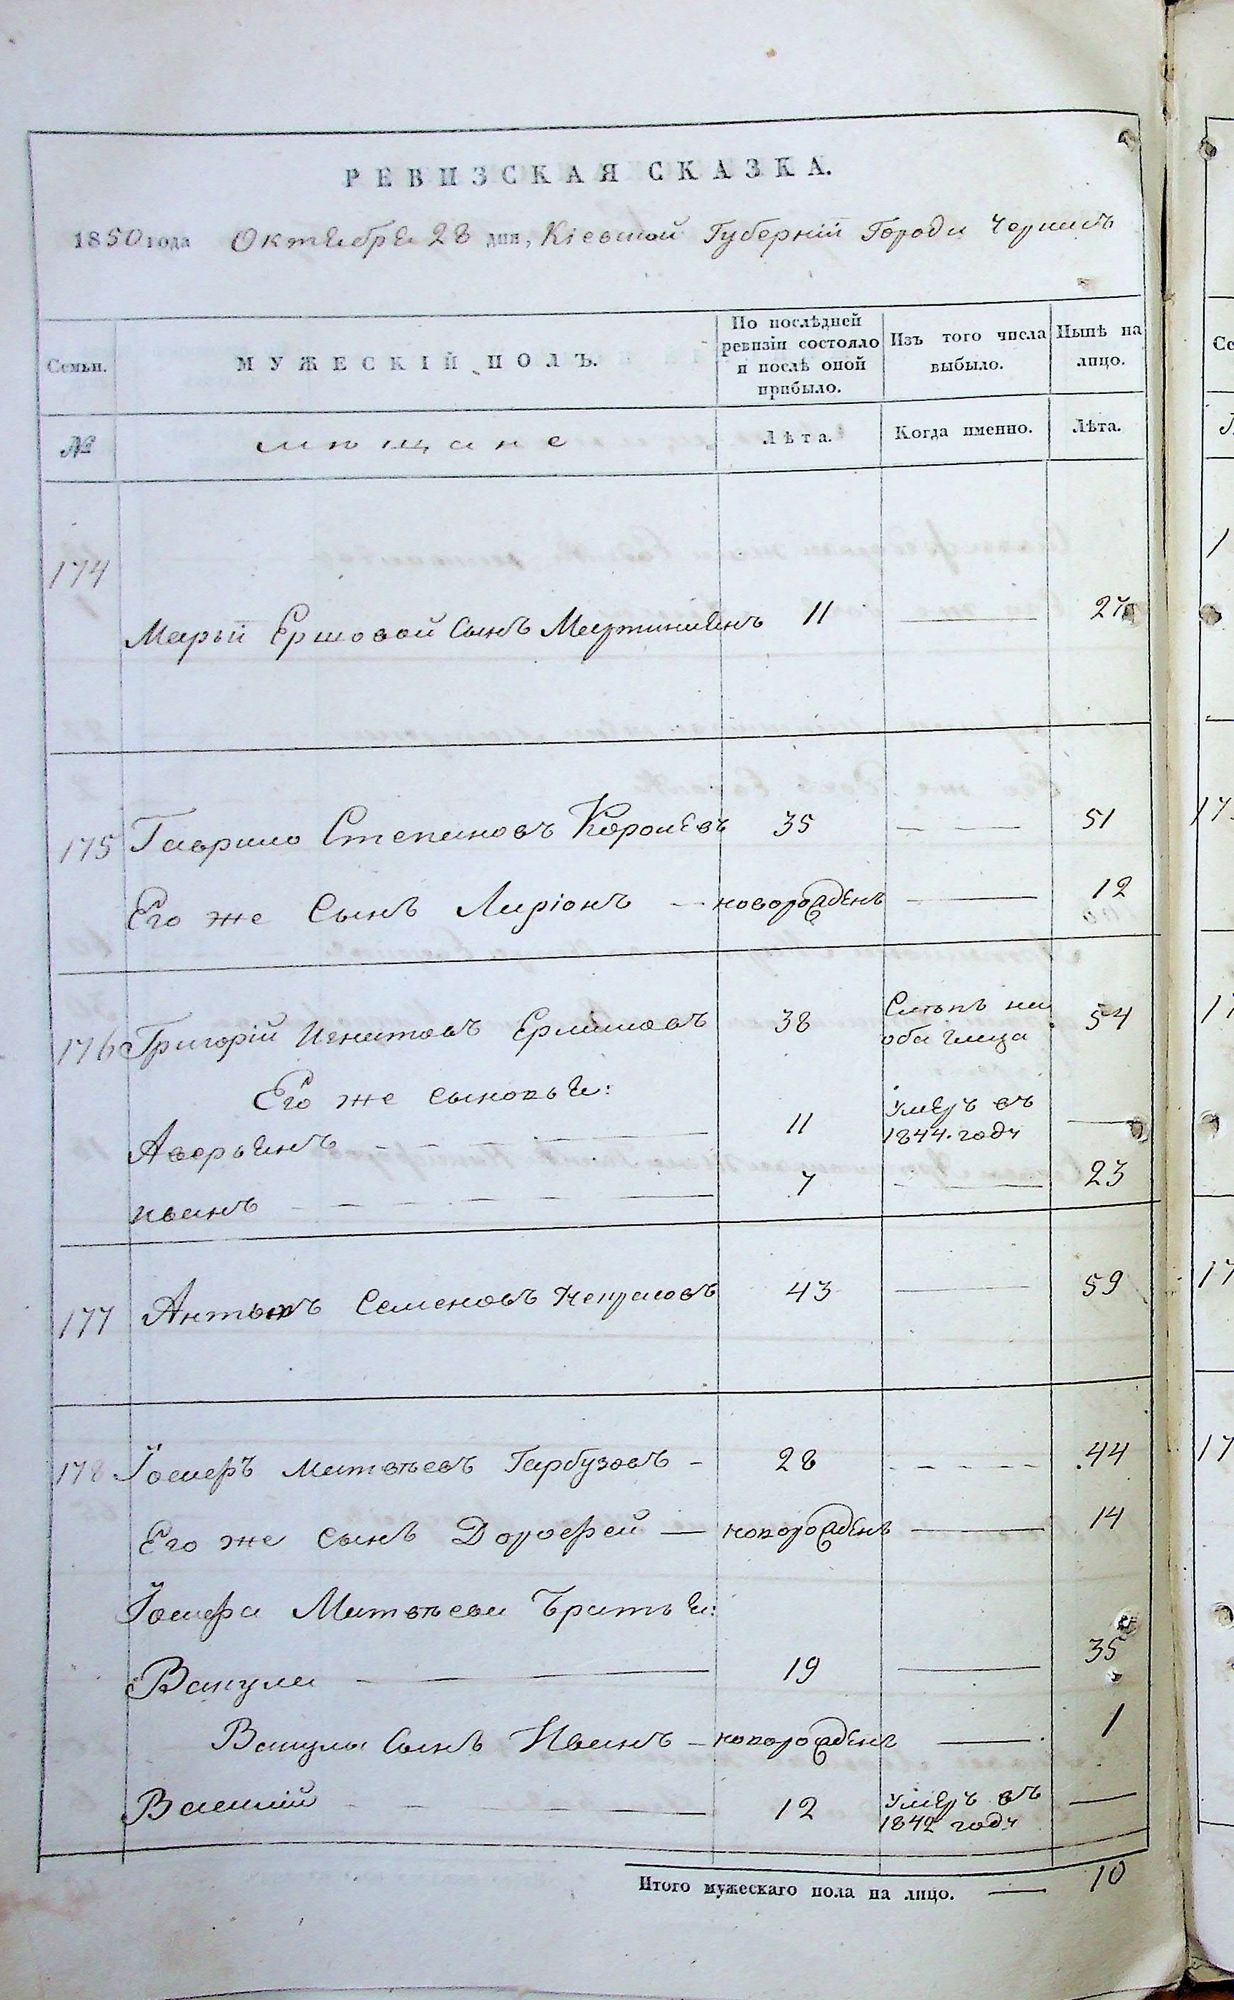 РЕВИЗСКАЯ СКАЗКА.
1850 года Октября 28 дня, Кіевской Губерніи Города
Семьи. МУЖЕСКІЙ ПОЛЪ. По послѣдней ревизіи состояло и послѣ оной прибыло. Изъ того числа выбыло. Нынѣ на лицо.
№ мѣщане Лѣта. Когда именно. Лѣта.
174
Марьи Ершовой Сынъ 11 27
175 Гаврило Степановъ Королевъ 35 51
Его же Сынъ Ларіонъ новорожденъ 12
176 Григорій Игнатовъ Ермаковъ 38 Слѣпъ на оба глаза 54
Его же сыновья:
Аверьянъ 11 Умеръ въ 1844 году
Иванъ 7 23
177 Антонъ Семеновъ Некрасовъ 43 59
178 Іосифъ Матвѣевъ Гарбузовъ 28 44
Его же сынъ Дорофей новорожденъ 14
Іосифа Матвѣева Братья:
Вакула 19 35
Вакулы Сынъ Иванъ новорожденъ 1
Василій 12 Умеръ въ 1842 году
Итого мужескаго пола на лицо. 10